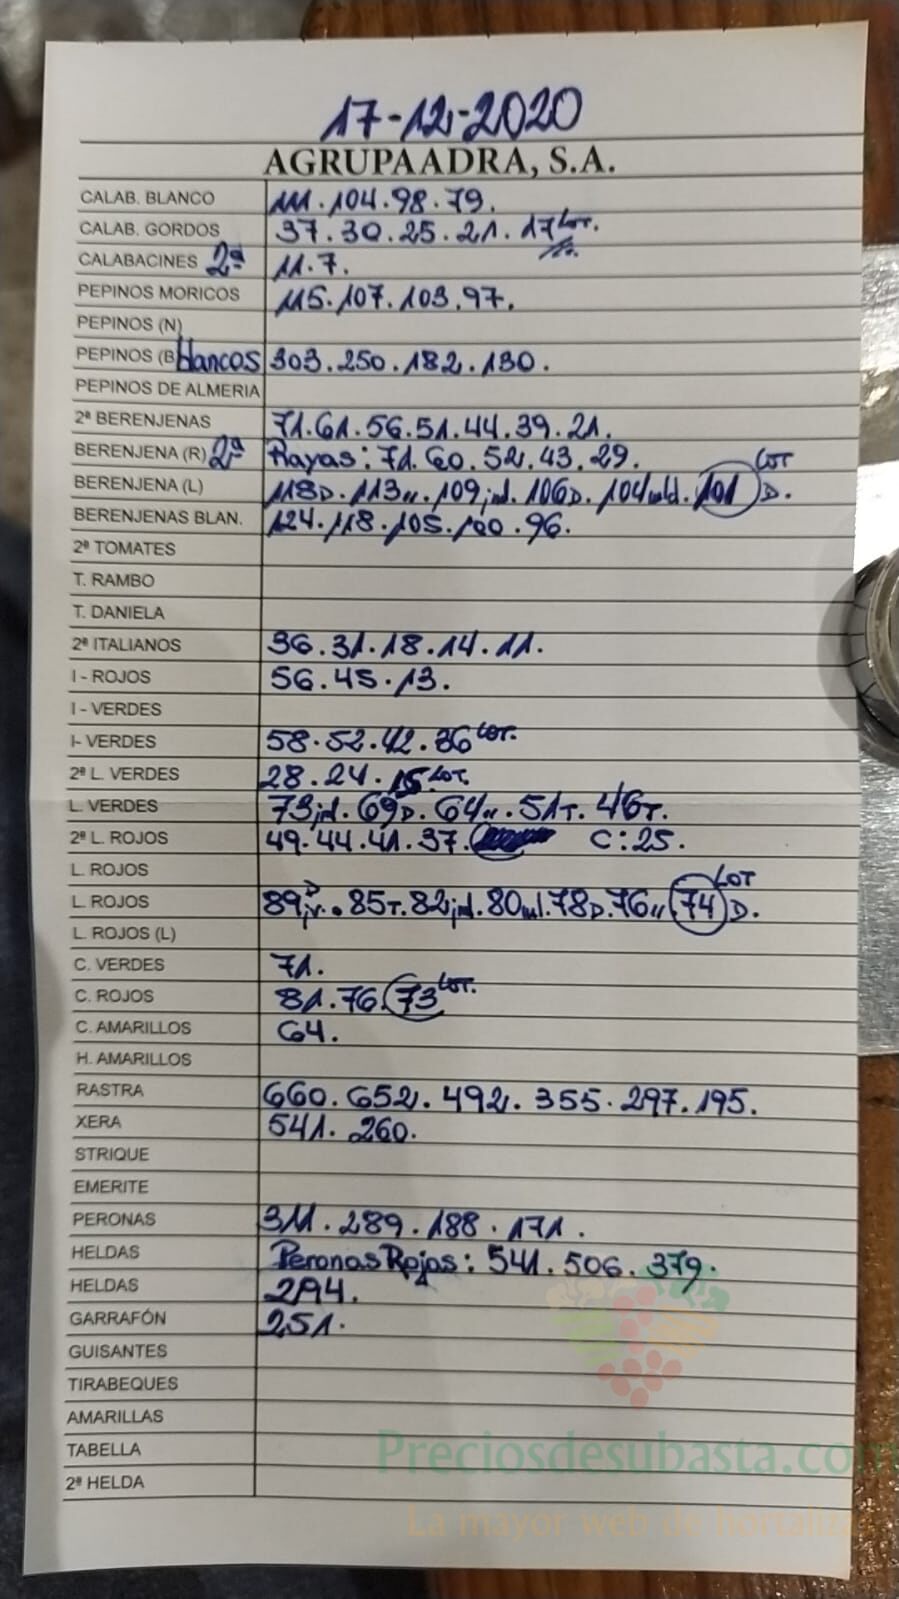 17-12-2020
AGRUPAADRA, S.A.
CALAB. BLANCO 111.104.98.79.
CALAB. GORDOS 37.30.25.21.17 LOT.
CALABACINES 2ª 11.7.
PEPINOS MORICOS 115.107.103.97.
PEPINOS (N)
PEPINOS (B blancos 303.250.182.130.
PEPINOS DE ALMERIA
2ª BERENJENAS 71.61.56.51.44.39.21.
BERENJENA (R) 2ª Rayas: 71.60.52.43.29.
BERENJENA (L) 118D.113".109 .106D.104 .101 D. LOT
BERENJENAS BLAN. 124.118.105.100.96.
2ª TOMATES
T. RAMBO
T. DANIELA
2ª ITALIANOS 36.31.18.14.11.
I - ROJOS 56.45.13.
I - VERDES
I- VERDES 58.52.42.36 LOT.
2ª L. VERDES 28.24.15 LOT.
L. VERDES 73 .69D.64".51T.46T.
2ª L. ROJOS 49.44.41.37. C:25.
L. ROJOS
L. ROJOS 89 .85T.82 .80 .78D.76".74 D. LOT
L. ROJOS (L)
C. VERDES 71.
C. ROJOS 81.76.73 LOT.
C. AMARILLOS 64.
H. AMARILLOS
RASTRA 660.652.492.355.297.195.
XERA 541.260.
STRIQUE
EMERITE
PERONAS 311.289.188.171.
HELDAS Peronas Rojas: 541.506.379.
HELDAS 294.
GARRAFÓN 251.
GUISANTES
TIRABEQUES
AMARILLAS
TABELLA
2ª HELDA
Preciosdesubasta.com
La mayor web de